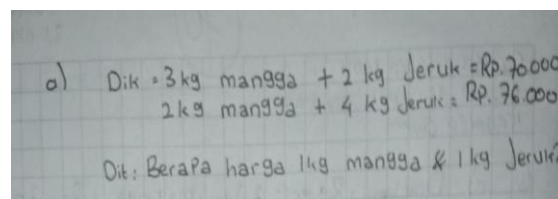 a) Dik = 3 kg mangga + 2 kg Jeruk = Rp. 70000
2 kg mangga + 4 kg Jeruk = Rp. 76.000
Dit : Berapa harga 1kg mangga & 1 kg Jeruk?